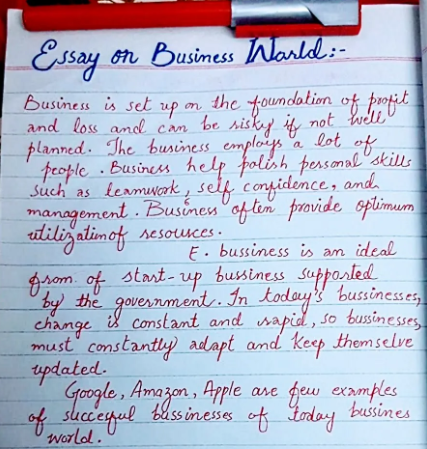 Essay on Business World:-
Business is set up on the foundation of profit
and loss and can be risky if not well
planned. The business employs a lot of
people. Business help polish personal skills
such as teamwork, self confidence, and
management. Business often provide optimum
utilization of resources.
E. bussiness is an ideal
from of start-up bussiness supported
by the government. In today's bussinesses,
change is constant and rapid, so bussinesses,
must constantly adapt and keep themselve
updated.
Google, Amazon, Apple are few examples
of succesful bussinesses of today bussines
world.